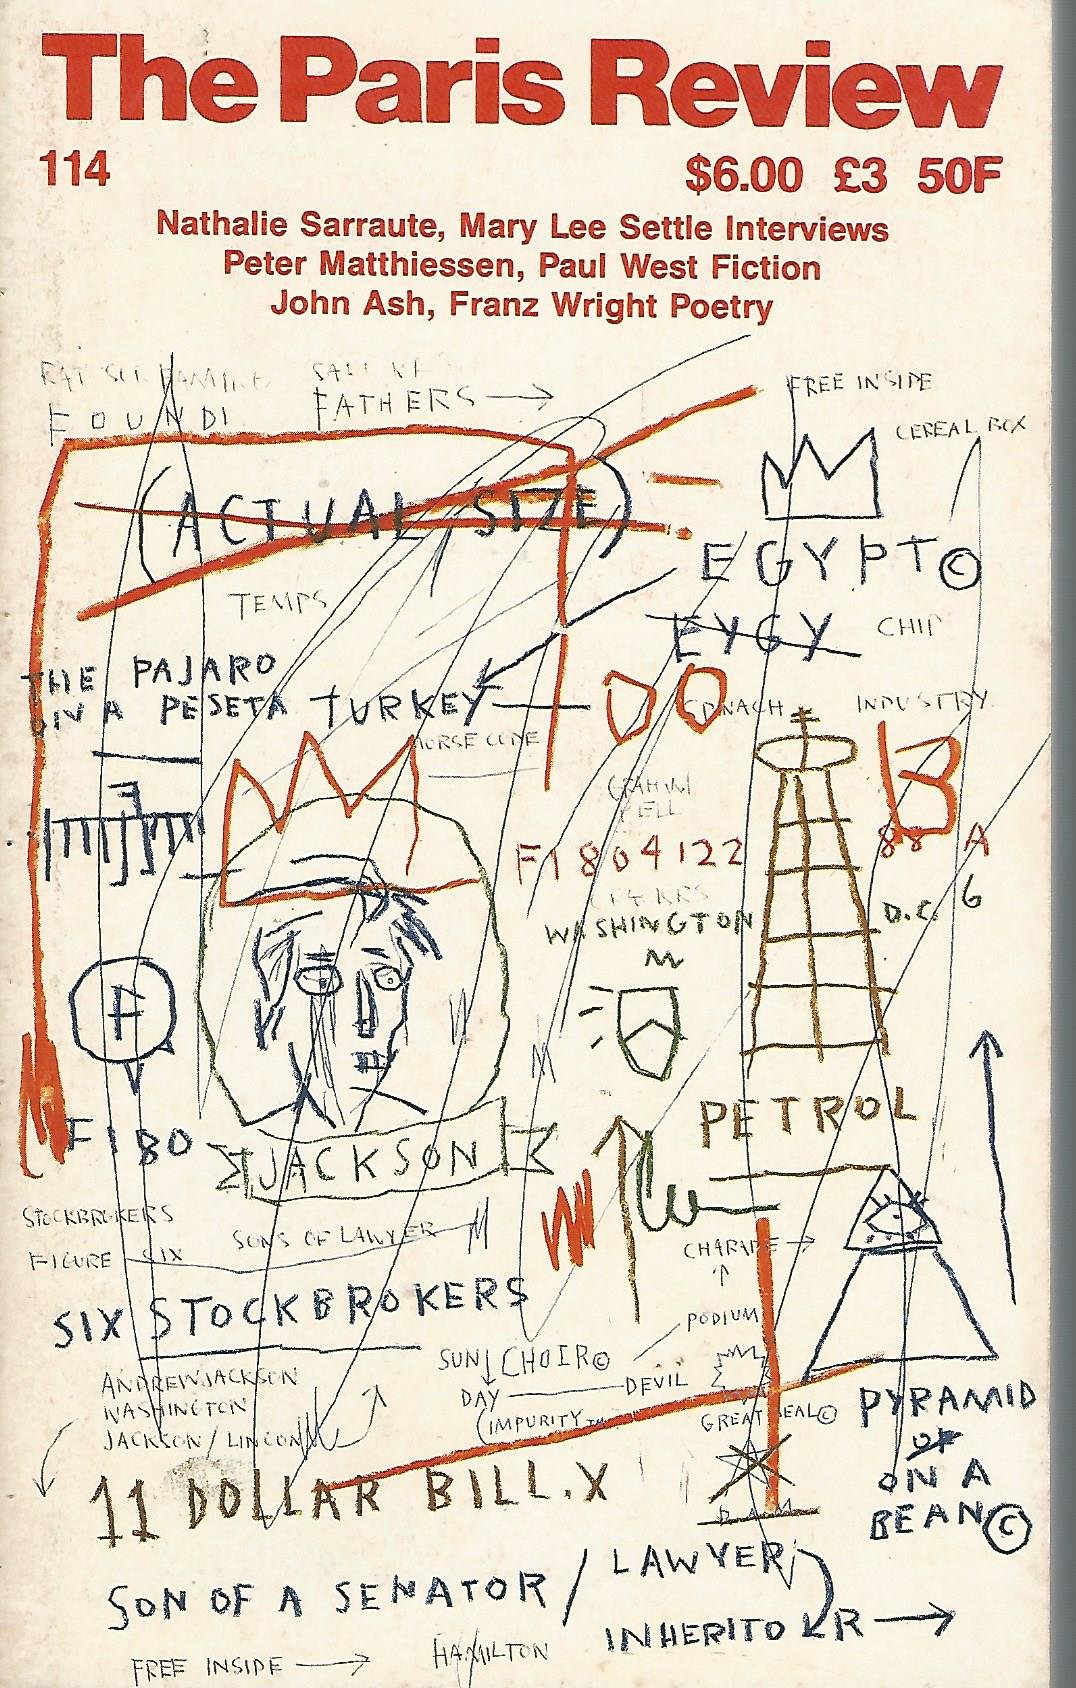 The Paris Review
114
$6.00 £3 50F
Nathalie Sarraute, Mary Lee Settle Interviews
Peter Matthiessen, Paul West Fiction
John Ash, Franz Wright Poetry
FOUNDI
FATHERS
FREE INSIDE
CEREAL BOX
(ACTUAL SIZE)
EGYPT©
TEMPS
EYGY
CHIP
THE PAJARO
ON A PESETA
TURKEY
SPINACH
INDUSTRY
MORSE CODE
B
F1804122
88 A
WASHINGTON
D.C. 6
F
F180
PETROL
JACKSON
STOCKBROKERS
FIGURE SIX
SONS OF LAWYER
CHARADE
SIX STOCKBROKERS
PODIUM
SUN CHOIR©
DAY DEVIL
(IMPURITY™
ANDREW JACKSON
WASHINGTON
JACKSON/LINCON
GREAT SEAL©
PYRAMID
OF
ON A
BEAN©
11 DOLLAR BILL.X
SON OF A SENATOR / LAWYER
INHERITOR
FREE INSIDE
HAMILTON